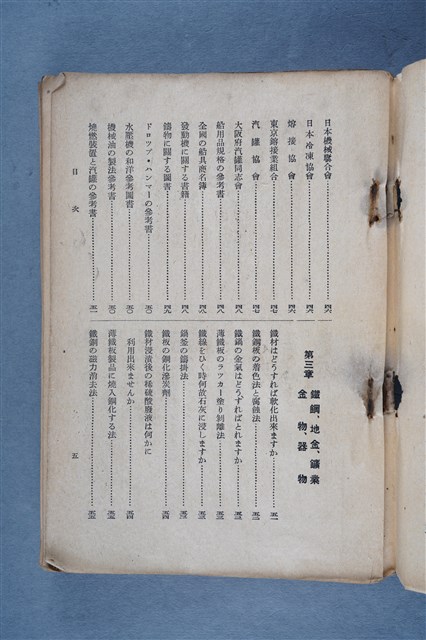 日本機械聯合會……四六
日本冷凍協會……四六
熔接協會……四六
東京熔接業組合……四七
汽罐協會……四七
大阪府汽罐同志會……四八
船用品規格の參考書……四八
全國の船具商名簿……四八
發動機に關する書籍……四九
鑄物に關する圖書……四九
ドロップ・ハンマーの參考書……五〇
水壓機の和洋參考圖書……五〇
機械油の製法參考書……五〇
燃燒裝置と汽罐の參考書……五一
第三章 鐵鋼、地金、鑛業
金物、器物
鐵材はどうすれば軟化出來ますか……五一
鐵鋼板の着色法と腐蝕法……五二
鐵鍋の金氣はどうすればとれますか……五二
薄鐵板のラッカー塗り剝離法……五三
鐵線をひく時何故石灰に浸しますか……五三
鍋釜の鑄掛法……五三
鐵板の鋼化滲炭劑……五四
鐵材浸漬後の稀硫酸廢液は何かに
利用出來ませんか……五四
薄鐵板製品に燒入鋼化する法……五五
鐵鋼の磁力消去法……五五
目次
五